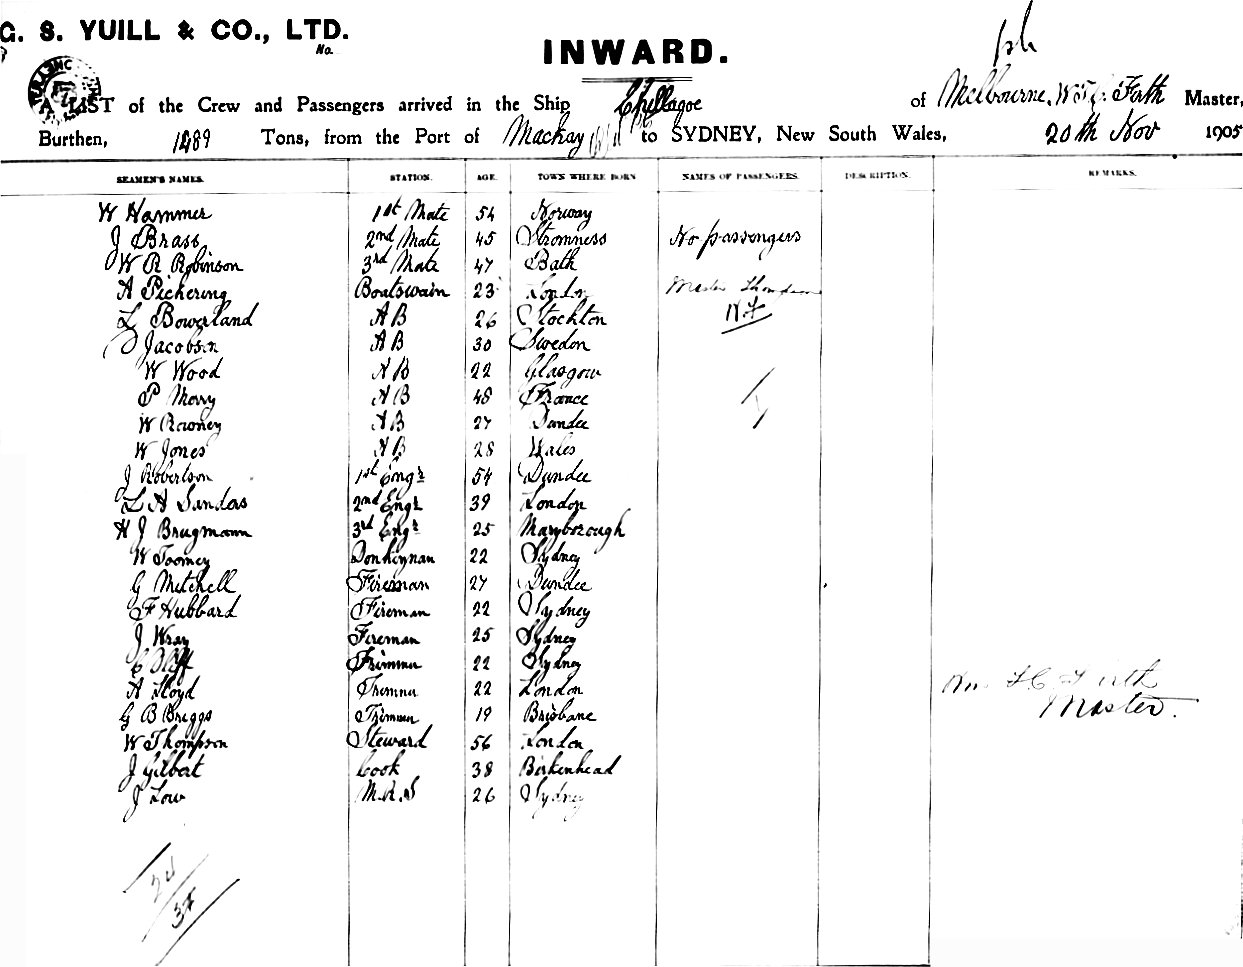 G. S. YUILL & CO., LTD.
No.
INWARD.
A LIST of the Crew and Passengers arrived in the Ship Chillagoe of Melbourne, Firth Master,
Burthen, 1489 Tons, from the Port of Mackay to SYDNEY, New South Wales, 20th Nov 1905
SEAMEN'S NAMES. STATION. AGE. TOWN WHERE BORN NAMES OF PASSENGERS. DESCRIPTION. REMARKS.
W Hammer 1st Mate 54 Norway
J Brass 2nd Mate 45 Stromness No passengers
W R Robinson 3rd Mate 47 Bath
A Pickering Boatswain 23 London Master Thompson
L Bowerland A B 26 Stockton
Jacobsen A B 30 Sweden
W Wood A B 22 Glasgow
P Morry A B 48 France
W Rooney A B 27 Dundee
W Jones A B 28 Wales
J Robertson 1st Engr 54 Dundee
L A Sanders 2nd Engr 39 London
H J Brugmann 3rd Engr 25 Maryborough
W Toomey Donkeyman 22 Sydney
G Mitchell Fireman 27 Dundee
F Hubbard Fireman 22 Sydney
J Wray Fireman 25 Sydney
Trimmer 22 Sydney
A Lloyd Trimmer 22 London
G B Briggs Trimmer 19 Brisbane
Master.
W Thompson Steward 56 London
J Gilbert Cook 38 Birkenhead
J Low M.R.S 26 Sydney